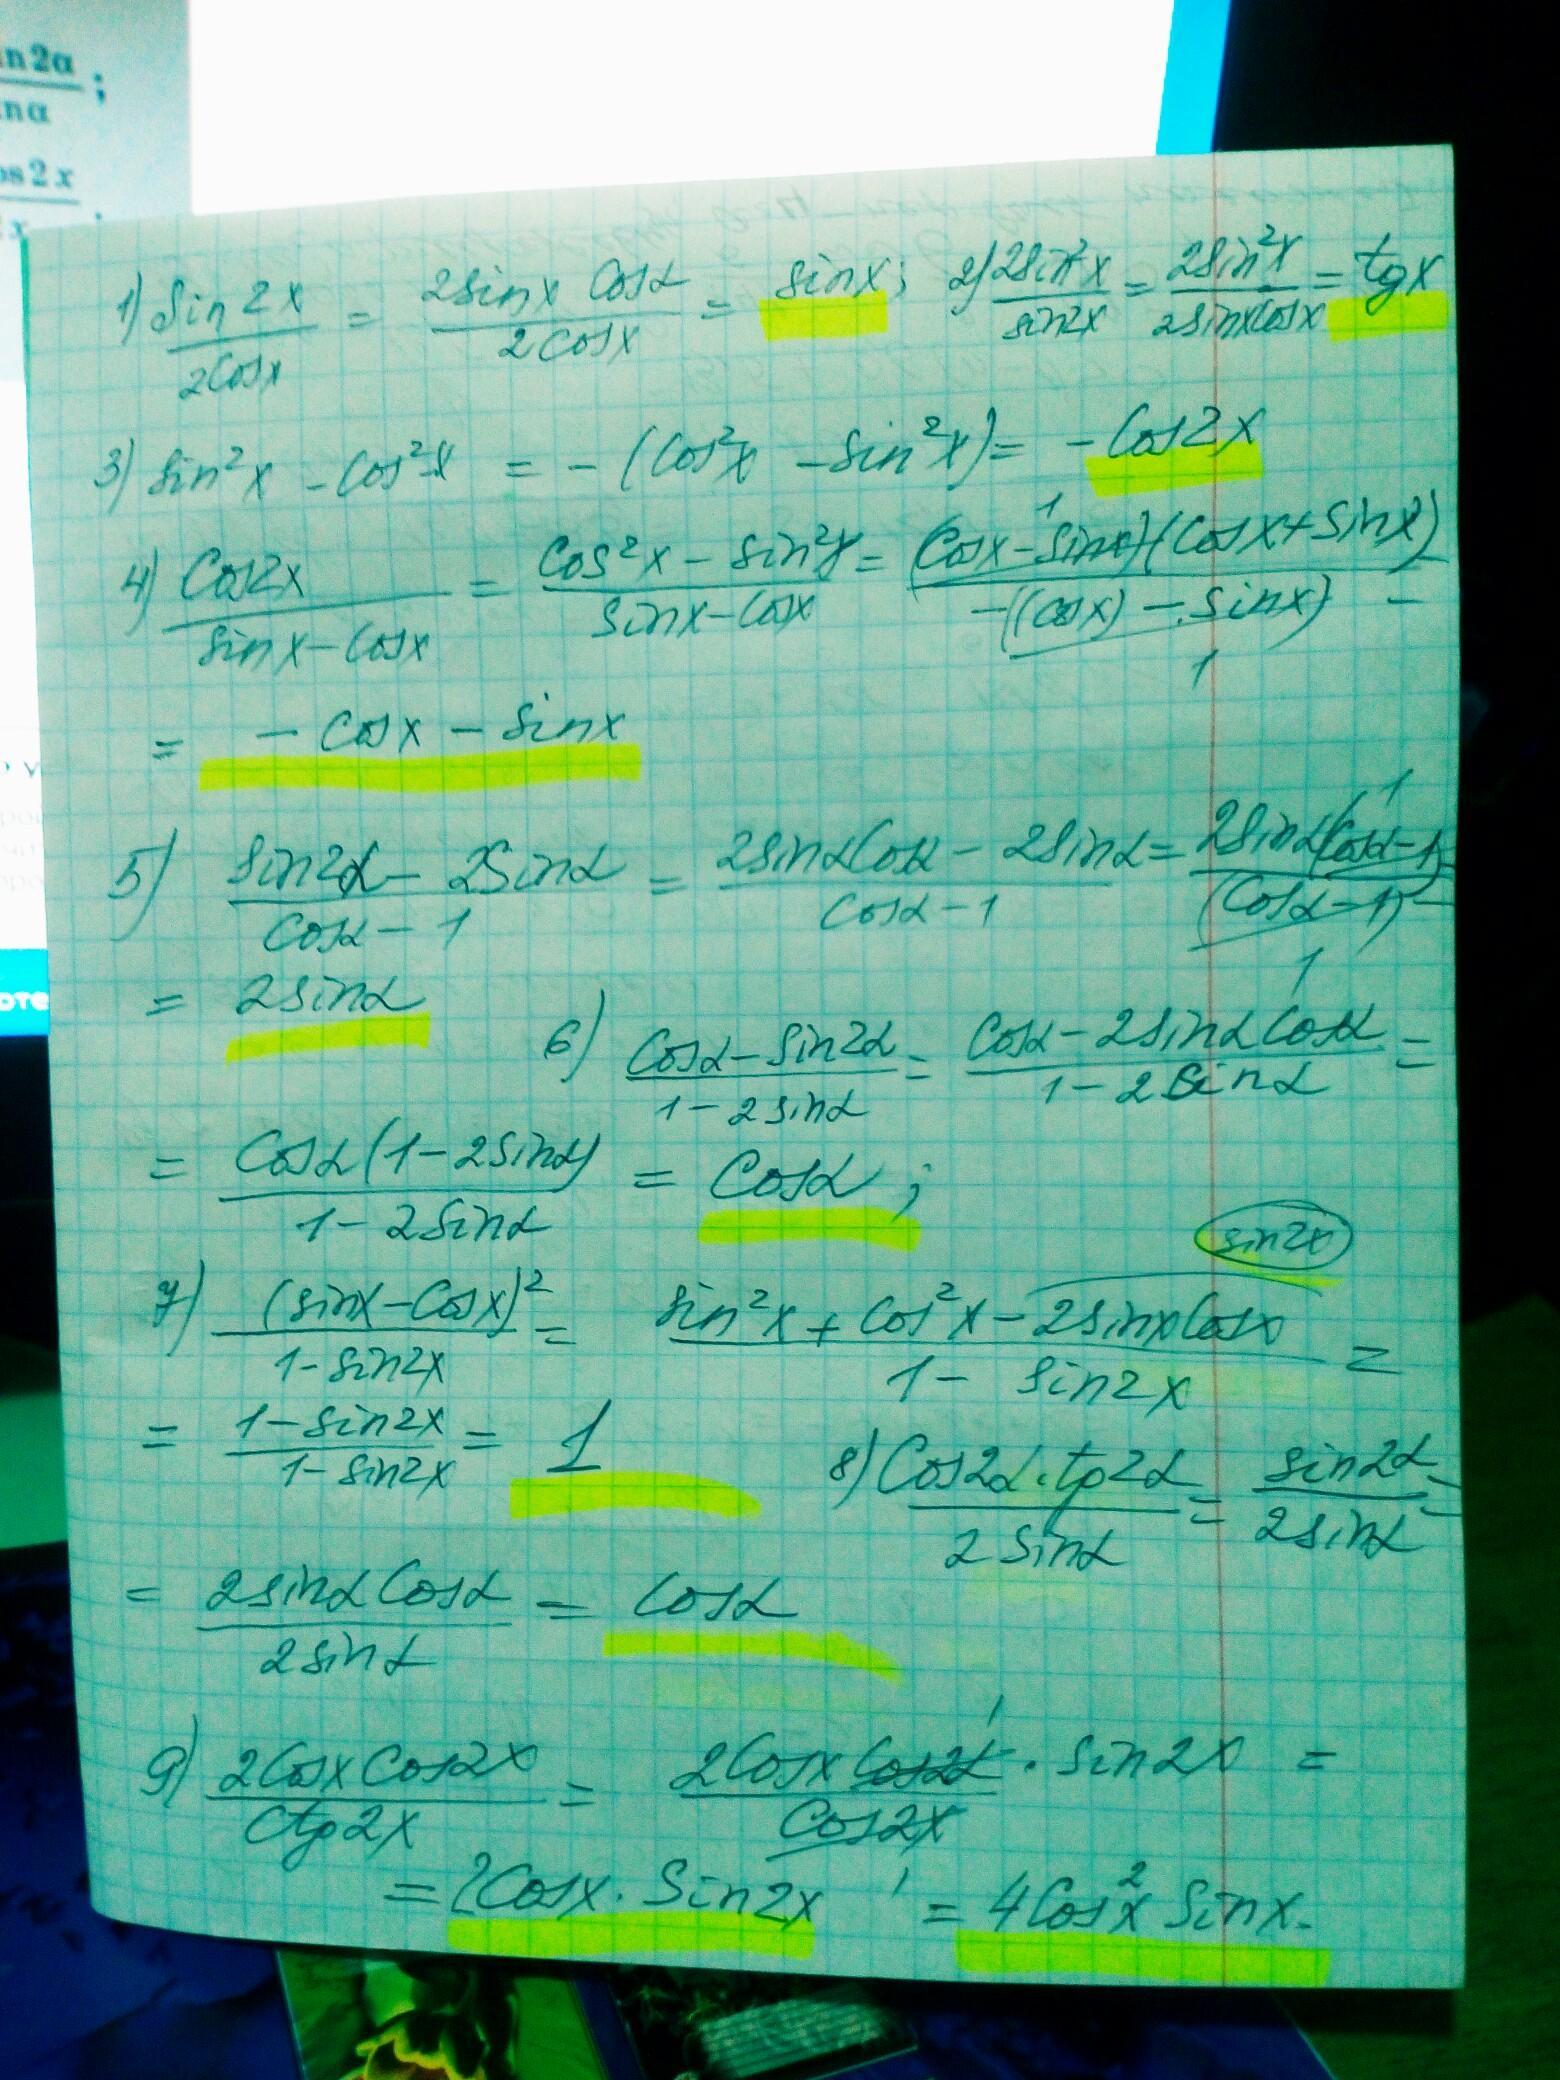 in2α
;
nα
os2x
x
1) Sin2x/2Cosx = 2Sinx Cosα/2Cosx = sinx; 2) 2Sin²x/sin2x = 2Sin²x/2SinxCosx = tgx
3) Sin²x - Cos²x = -(Cos²x - Sin²x) = -Cos2x
4) Cos2x/Sinx-Cosx = Cos²x - Sin²x/Sinx-Cosx = (Cosx-Sinx)¹(Cosx+Sinx)/-((Cosx) - Sinx) 1 =
= - Cosx - Sinx
5) Sin2α - 2Sinα/Cosα-1 = 2SinαCosα - 2Sinα/Cosα-1 = 2Sinα(Cosα-1)¹/(Cosα-1) 1 =
= 2Sinα
6) Cosα-Sin2α/1-2Sinα = Cosα-2SinαCosα/1-2Sinα =
= Cosα(1-2Sinα)/1-2Sinα = Cosα;
sin2x
7) (Sinx-Cosx)²/1-Sin2x = Sin²x + Cos²x - 2SinxCosx/1- Sin2x =
= 1-Sin2x/1-Sin2x = 1
8) Cos2α·tg2α/2Sinα = Sin2α/2Sinα =
= 2SinαCosα/2Sinα = Cosα
9) 2CosxCos2x/Ctg2x = 2CosxCos2x¹/Cos2x 1 · Sin2x =
= 2Cosx·Sin2x = 4Cos²x Sinx.